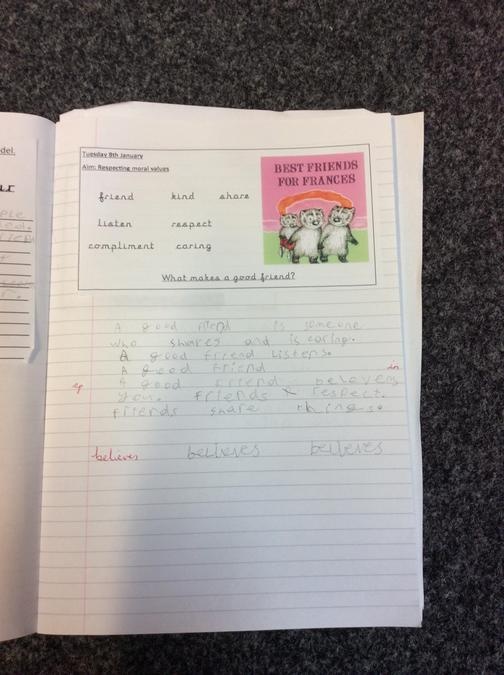 del.
Tuesday 8th January
Aim: Respecting moral values
BEST FRIENDS
FOR FRANCES
friend kind share
listen respect
compliment caring
What makes a good friend?
A good friend is someone
who shares and is caring.
A good friend listens.
A good friend in
sp A good friend belevers
you. friends x respect.
friends share things.
believes believes believes